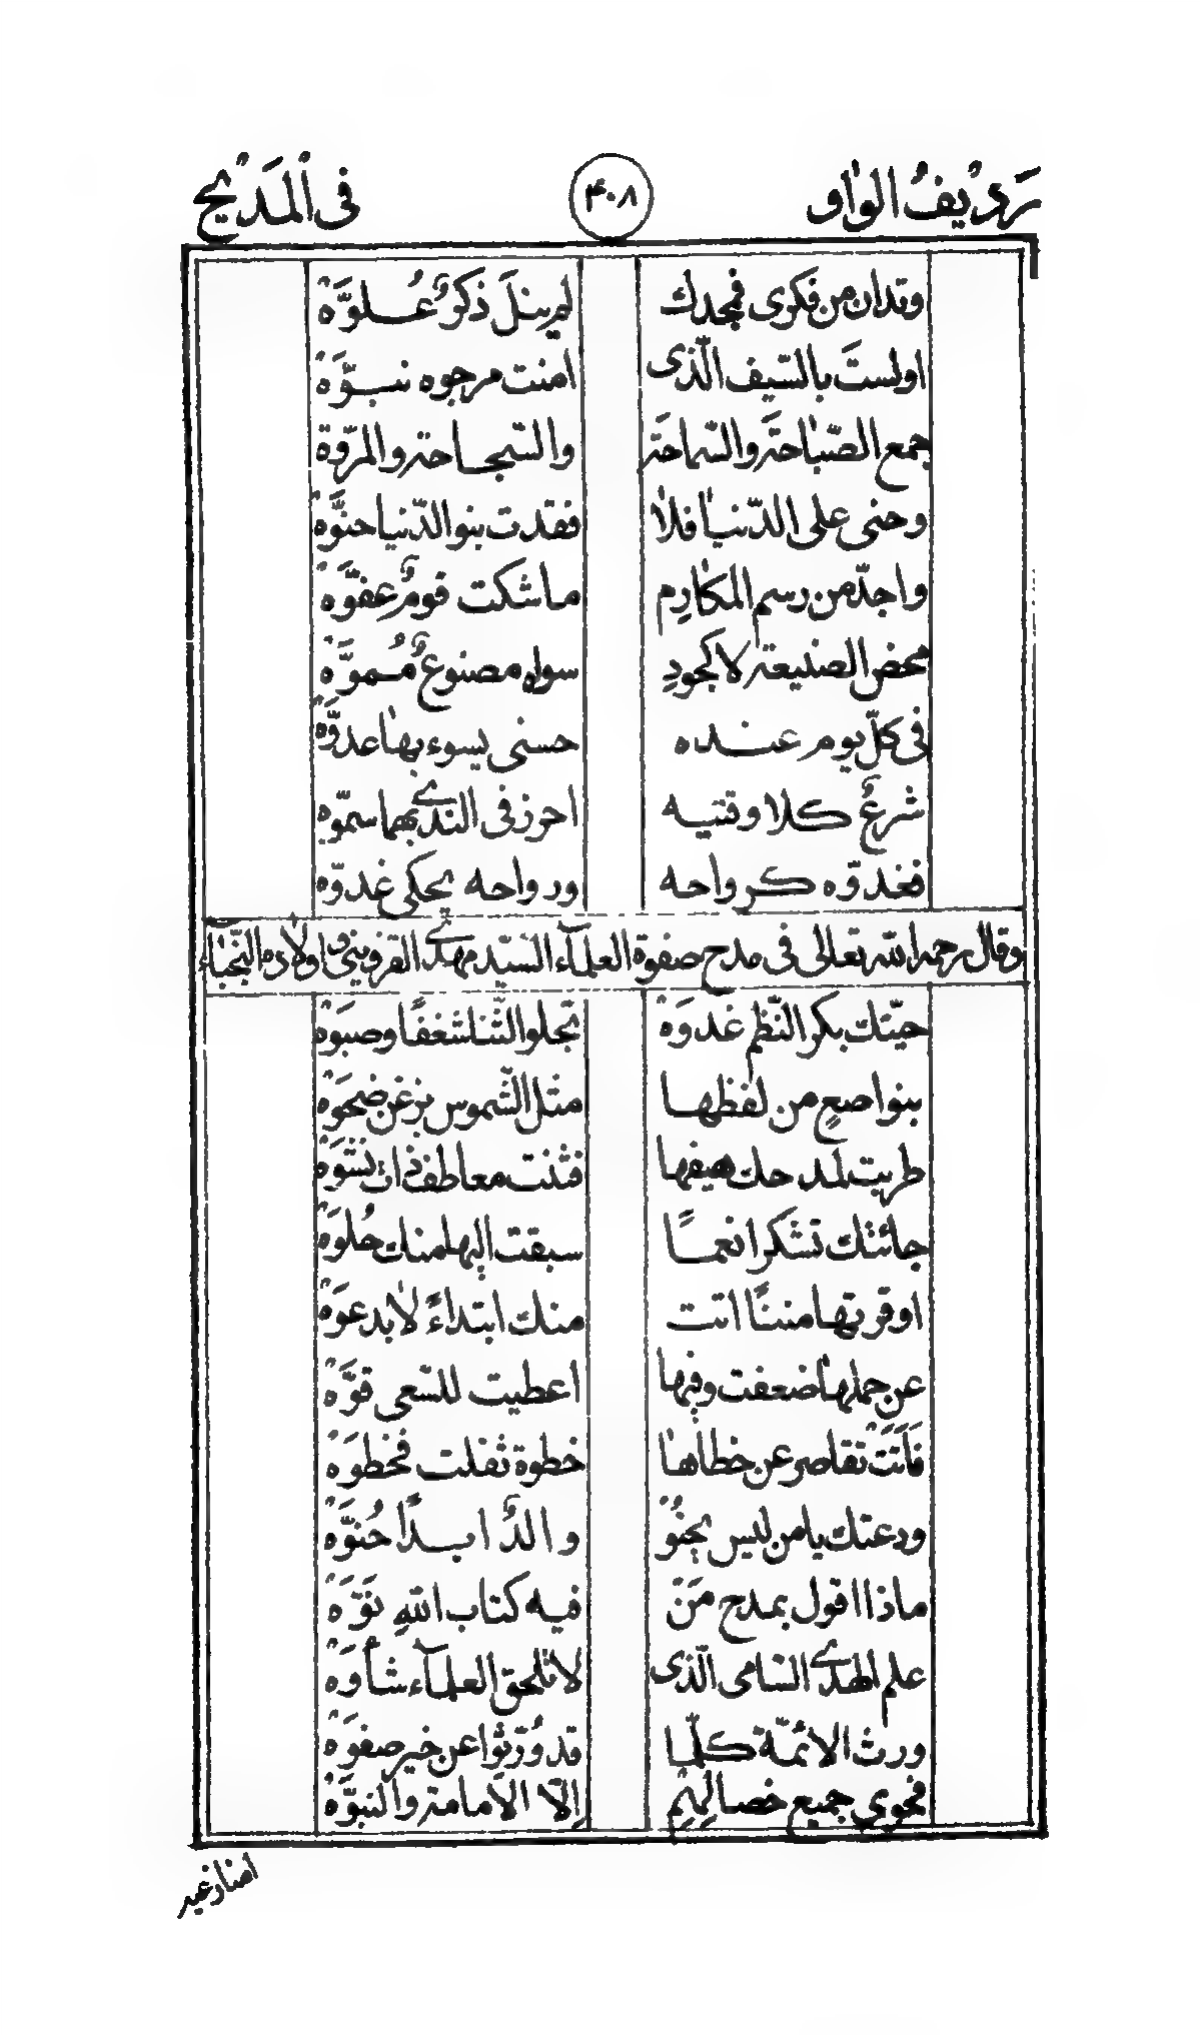 رَدِيْفُ الوٰاو ۴۰۸ فى اْلمَدْيح
وتدان من فكرى فمجدك لم ينلَ ذكرٌ عُلوَّهْ
اولستَ بالسّيف الّذى امنت مرجوه نبوَّهْ
جمع الصّبٰاحَة والسّماحَة والسّجاحة والمرّوة
وحنى على الدّنيٰا فلاٰ فقدت بنو الدّنيا حنوَّهْ
واجدّ من رسم المكٰارِم ما شكت قومٌ عفوَّهْ
محض الصنيعة لا كجودِ سواه مصنوعٌ مُموَّهْ
فى كلّ يوم عنده حسنى يسوء بهٰا عدوَّهْ
شرعٌ كلا وقتيه احرز فى الندى بهما سموّه
فغدوّه كرواحه ورواحه يحكى غدوّه
وقال رحمه الله تعالى فى مدح صفوة العلمآء السّيّد مهدى القزوينى واولاده النّجبٰآء
حيّتك بكر النّظم غدوَهْ تجلو الثّنا شغفًا وصبوَهْ
بنواصعٍ من لفظها مثل الشّموس بزغن ضحوَهْ
طربت لمدحك هيفها فثنت معاطف ذات نشوَهْ
جائتك تشكر انعمًا سبقت اليها منك حُلوَهْ
اوقرتها مننًا اتت منك ابتداءً لاٰ بدعوَهْ
عن حملهٰا ضعفت وفيها اعطيت للسّعى قوَّهْ
فَأَتَتْ تقاصر عن خطاهٰا خطوة ثقلت فخطوَهْ
ودعتك يا من ليس يحنُوْ والدٌ ابدًا حُنوَّهْ
ماذا اقول بمدح مَنْ فيه كتاب اللهِ نَوَّهْ
علم الهدى السّامى الّذى لا تلحق العلمآء شأوَهْ
ورث الائمّة كلّما قد وُرّثوا عن خير صفوَهْ
فحوى جميع خصالِهِمْ اِلّا الاَمامة والنبوَّهْ